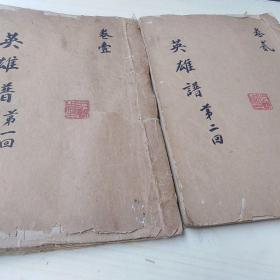 卷壹
英雄普第一回
卷貳
英雄譜第二回